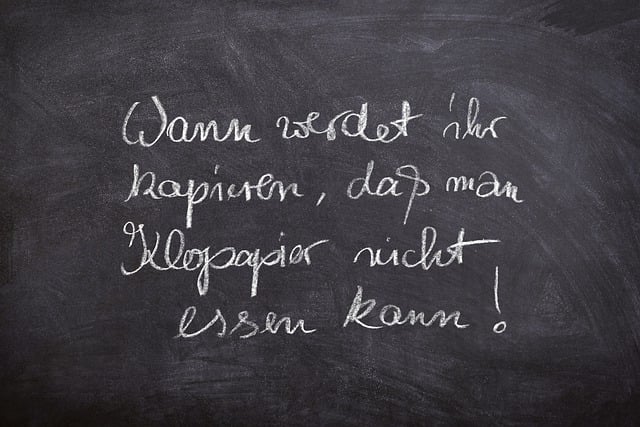 Wann werdet ihr
kapieren, daß man
Klopapier nicht
essen kann!